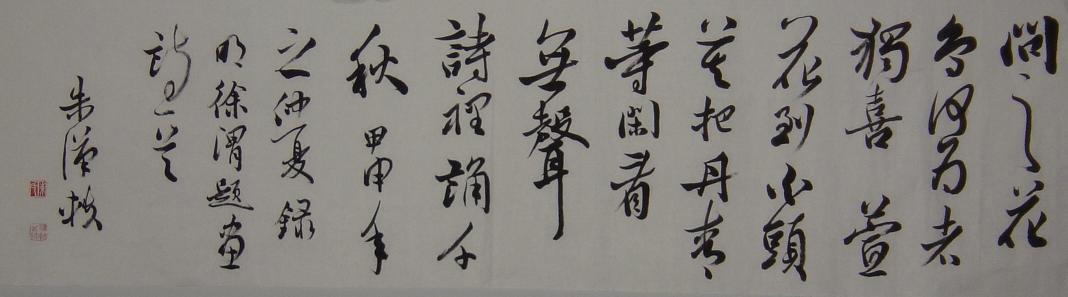 問之花
鳥何为者
獨喜萱
花到白頭
莫把丹青
等閑看
無聲
詩裡誦千
秋 甲申年
之仲夏錄
明徐渭題畫
詩一首
朱漢